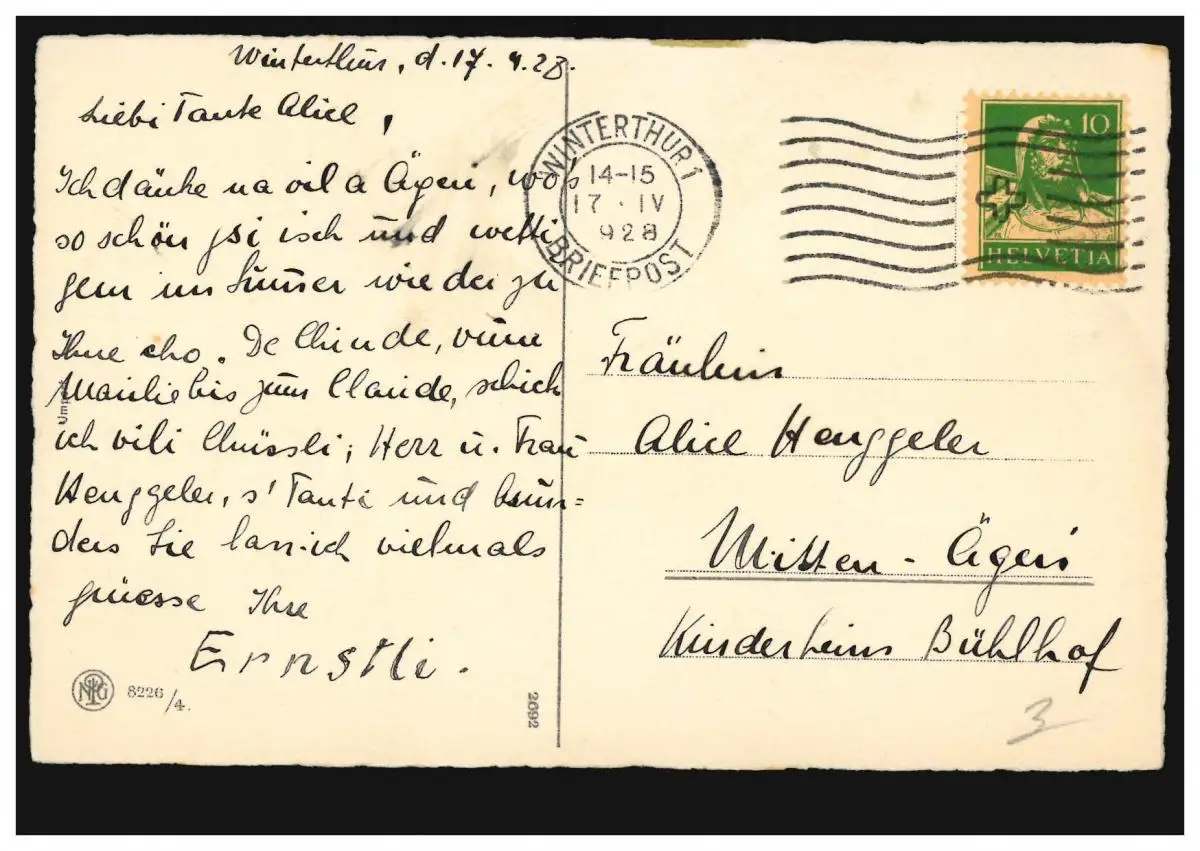 Winterthur, d. 17. 4. 28.
Liebi Tante Alice,
Ich dänke na vil a Ägeri, wo's
so schön gsi isch und wetti
gern im Summer wieder zu
Ihne cho. De Chinde, vum
Mairlie bis zum Claude, schick
ich vili Chüssli; Herr u. Frau
Henggeler, s'Tanti und bsun=
ders Sie lass-ich vielmals
grüesse Ihre
Ernstli.
8226/4.
2092
WINTERTHUR 1
14-15
17. IV
928
BRIEFPOST
10
HELVETIA
Fräulein
Alice Henggeler
Mitten-Ägeri
Kinderheim Bühlhof
3